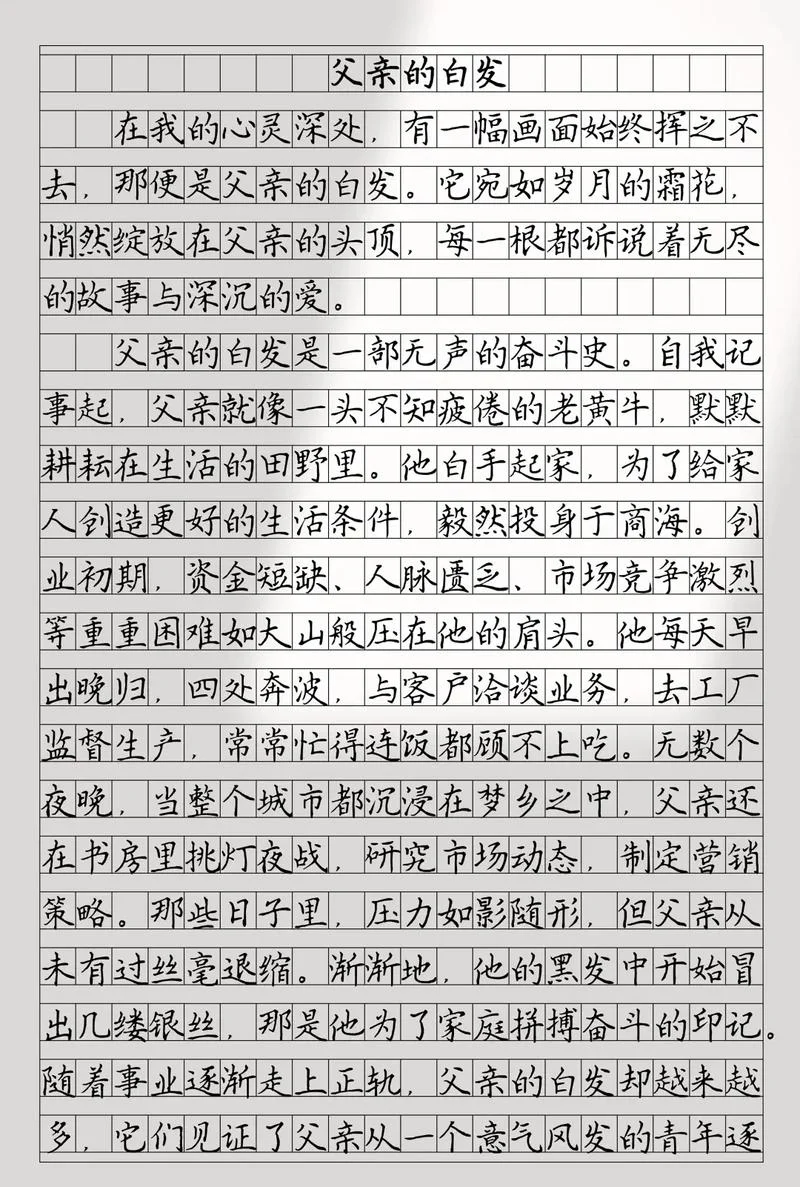 父亲的白发
在我的心灵深处，有一幅画面始终挥之不
去，那便是父亲的白发。它宛如岁月的霜花，
悄然绽放在父亲的头顶，每一根都诉说着无尽
的故事与深沉的爱。
父亲的白发是一部无声的奋斗史。自我记
事起，父亲就像一头不知疲倦的老黄牛，默默
耕耘在生活的田野里。他白手起家，为了给家
人创造更好的生活条件，毅然投身于商海。创
业初期，资金短缺、人脉匮乏、市场竞争激烈
等重重困难如大山般压在他的肩头。他每天早
出晚归，四处奔波，与客户洽谈业务，去工厂
监督生产，常常忙得连饭都顾不上吃。无数个
夜晚，当整个城市都沉浸在梦乡之中，父亲还
在书房里挑灯夜战，研究市场动态，制定营销
策略。那些日子里，压力如影随形，但父亲从
未有过丝毫退缩。渐渐地，他的黑发中开始冒
出几缕银丝，那是他为了家庭拼搏奋斗的印记。
随着事业逐渐走上正轨，父亲的白发却越来越
多，它们见证了父亲从一个意气风发的青年逐